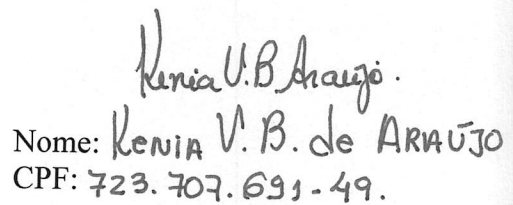 Kenia V.B Araujo.
Nome: Kenia V. B. de ARAÚJO
CPF: 723.707.691-49.